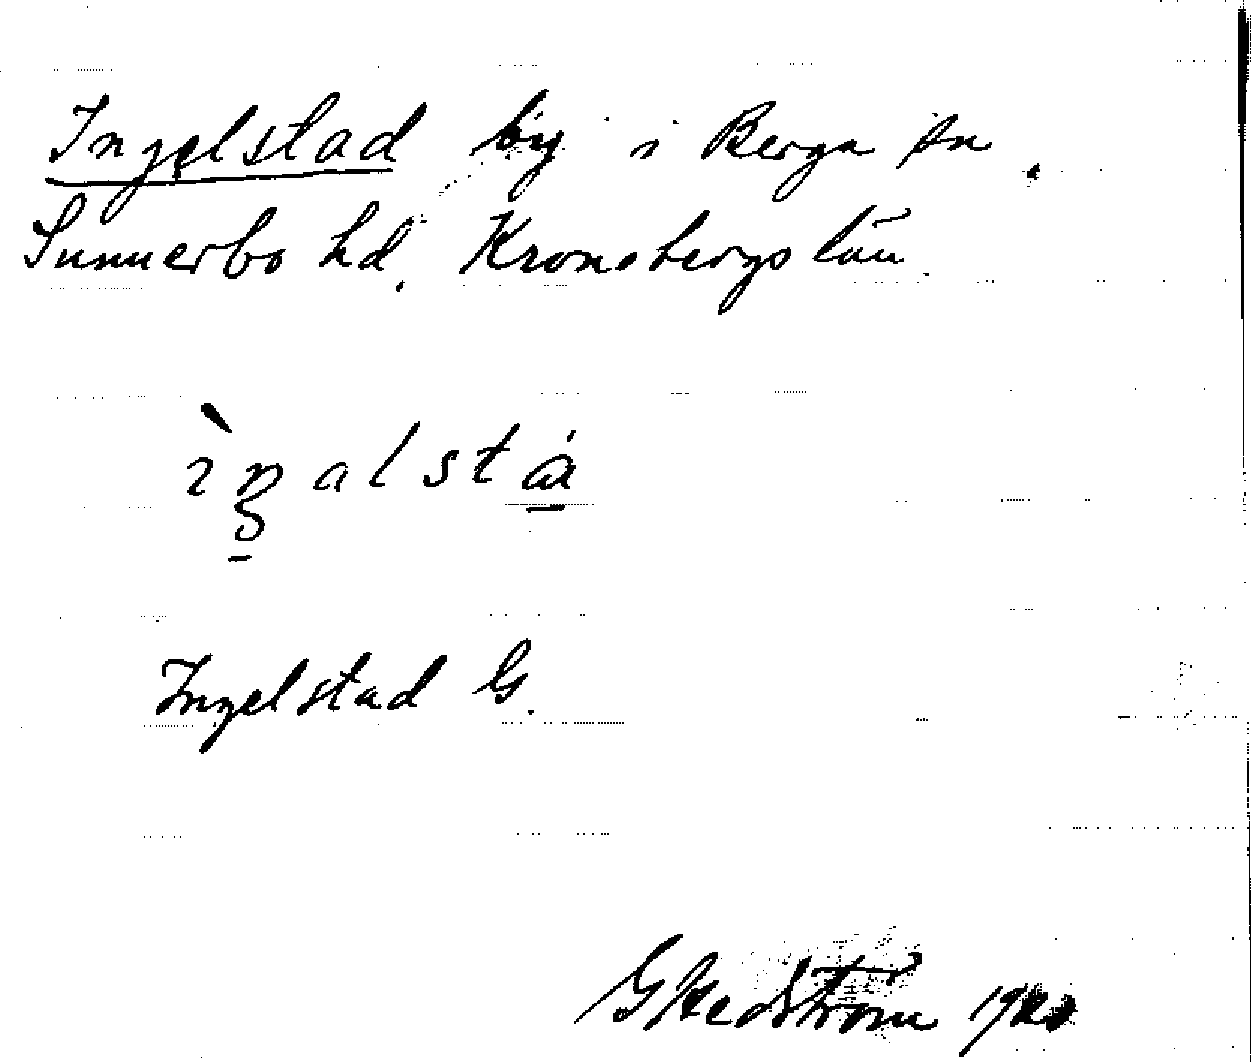 Ingelstad by i Berga sn,
Sunnerbo hd, Kronobergs län
Ingelstad G.
G Hedström